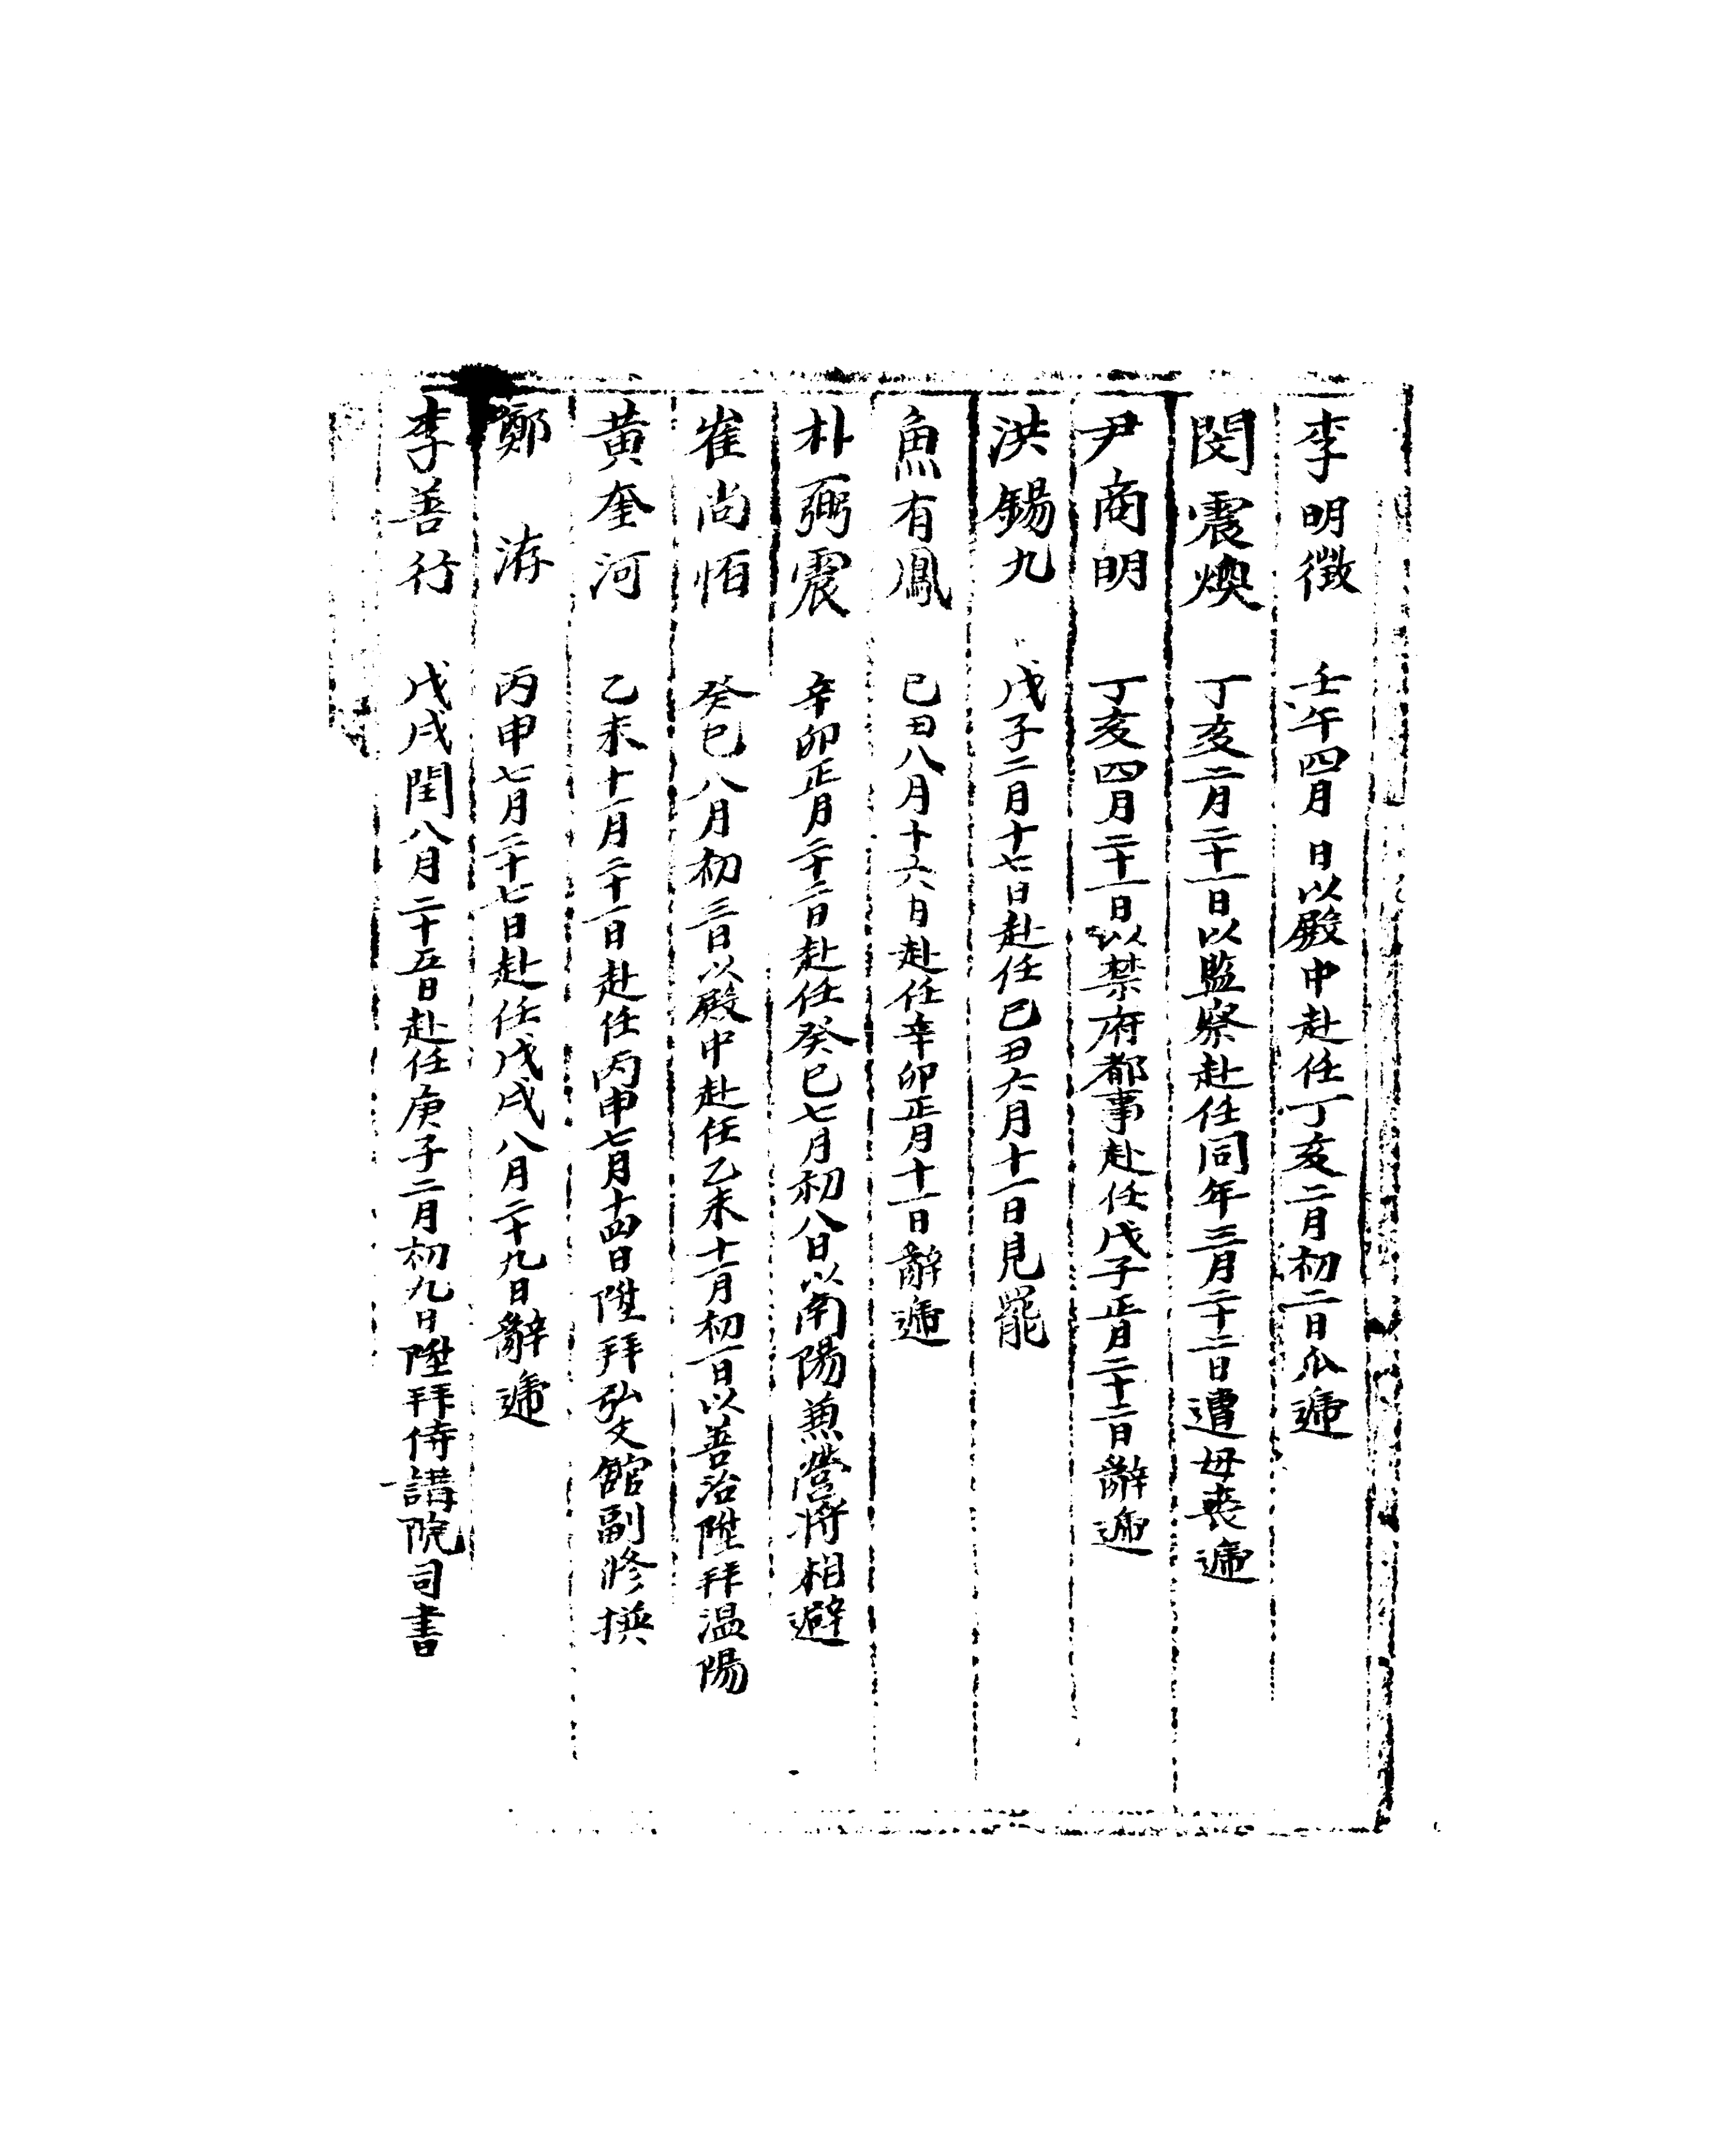 李明徵 壬午四月 日以殿中赴任丁亥二月初二日瓜遞
閔震煥 丁亥二月二十一日以監察赴任同年三月二十二日遭母喪遞
尹商明 丁亥四月二十一日以禁府都事赴任戊子正月二十二日辭遞
洪錫九 戊子二月十七日赴任已丑六月十一日見罷
魚有鳳 已丑八月十六日赴任辛卯正月十一日辭遞
朴弼震 辛卯正月二十二日赴任癸巳七月初八日以南陽兼營將相避
崔尚 癸巳八月初三日以殿中赴任乙未十一月初一日以善治陞拜溫陽
黃奎河 乙未十一月二十一日赴任丙申七月十四日陞拜弘文館副修撰
鄭洊 丙申七月二十七日赴任戊戌八月二十九日辭遞
李善行 戊戌閏八月二十五日赴任庚子二月初九日陞拜侍講院司書